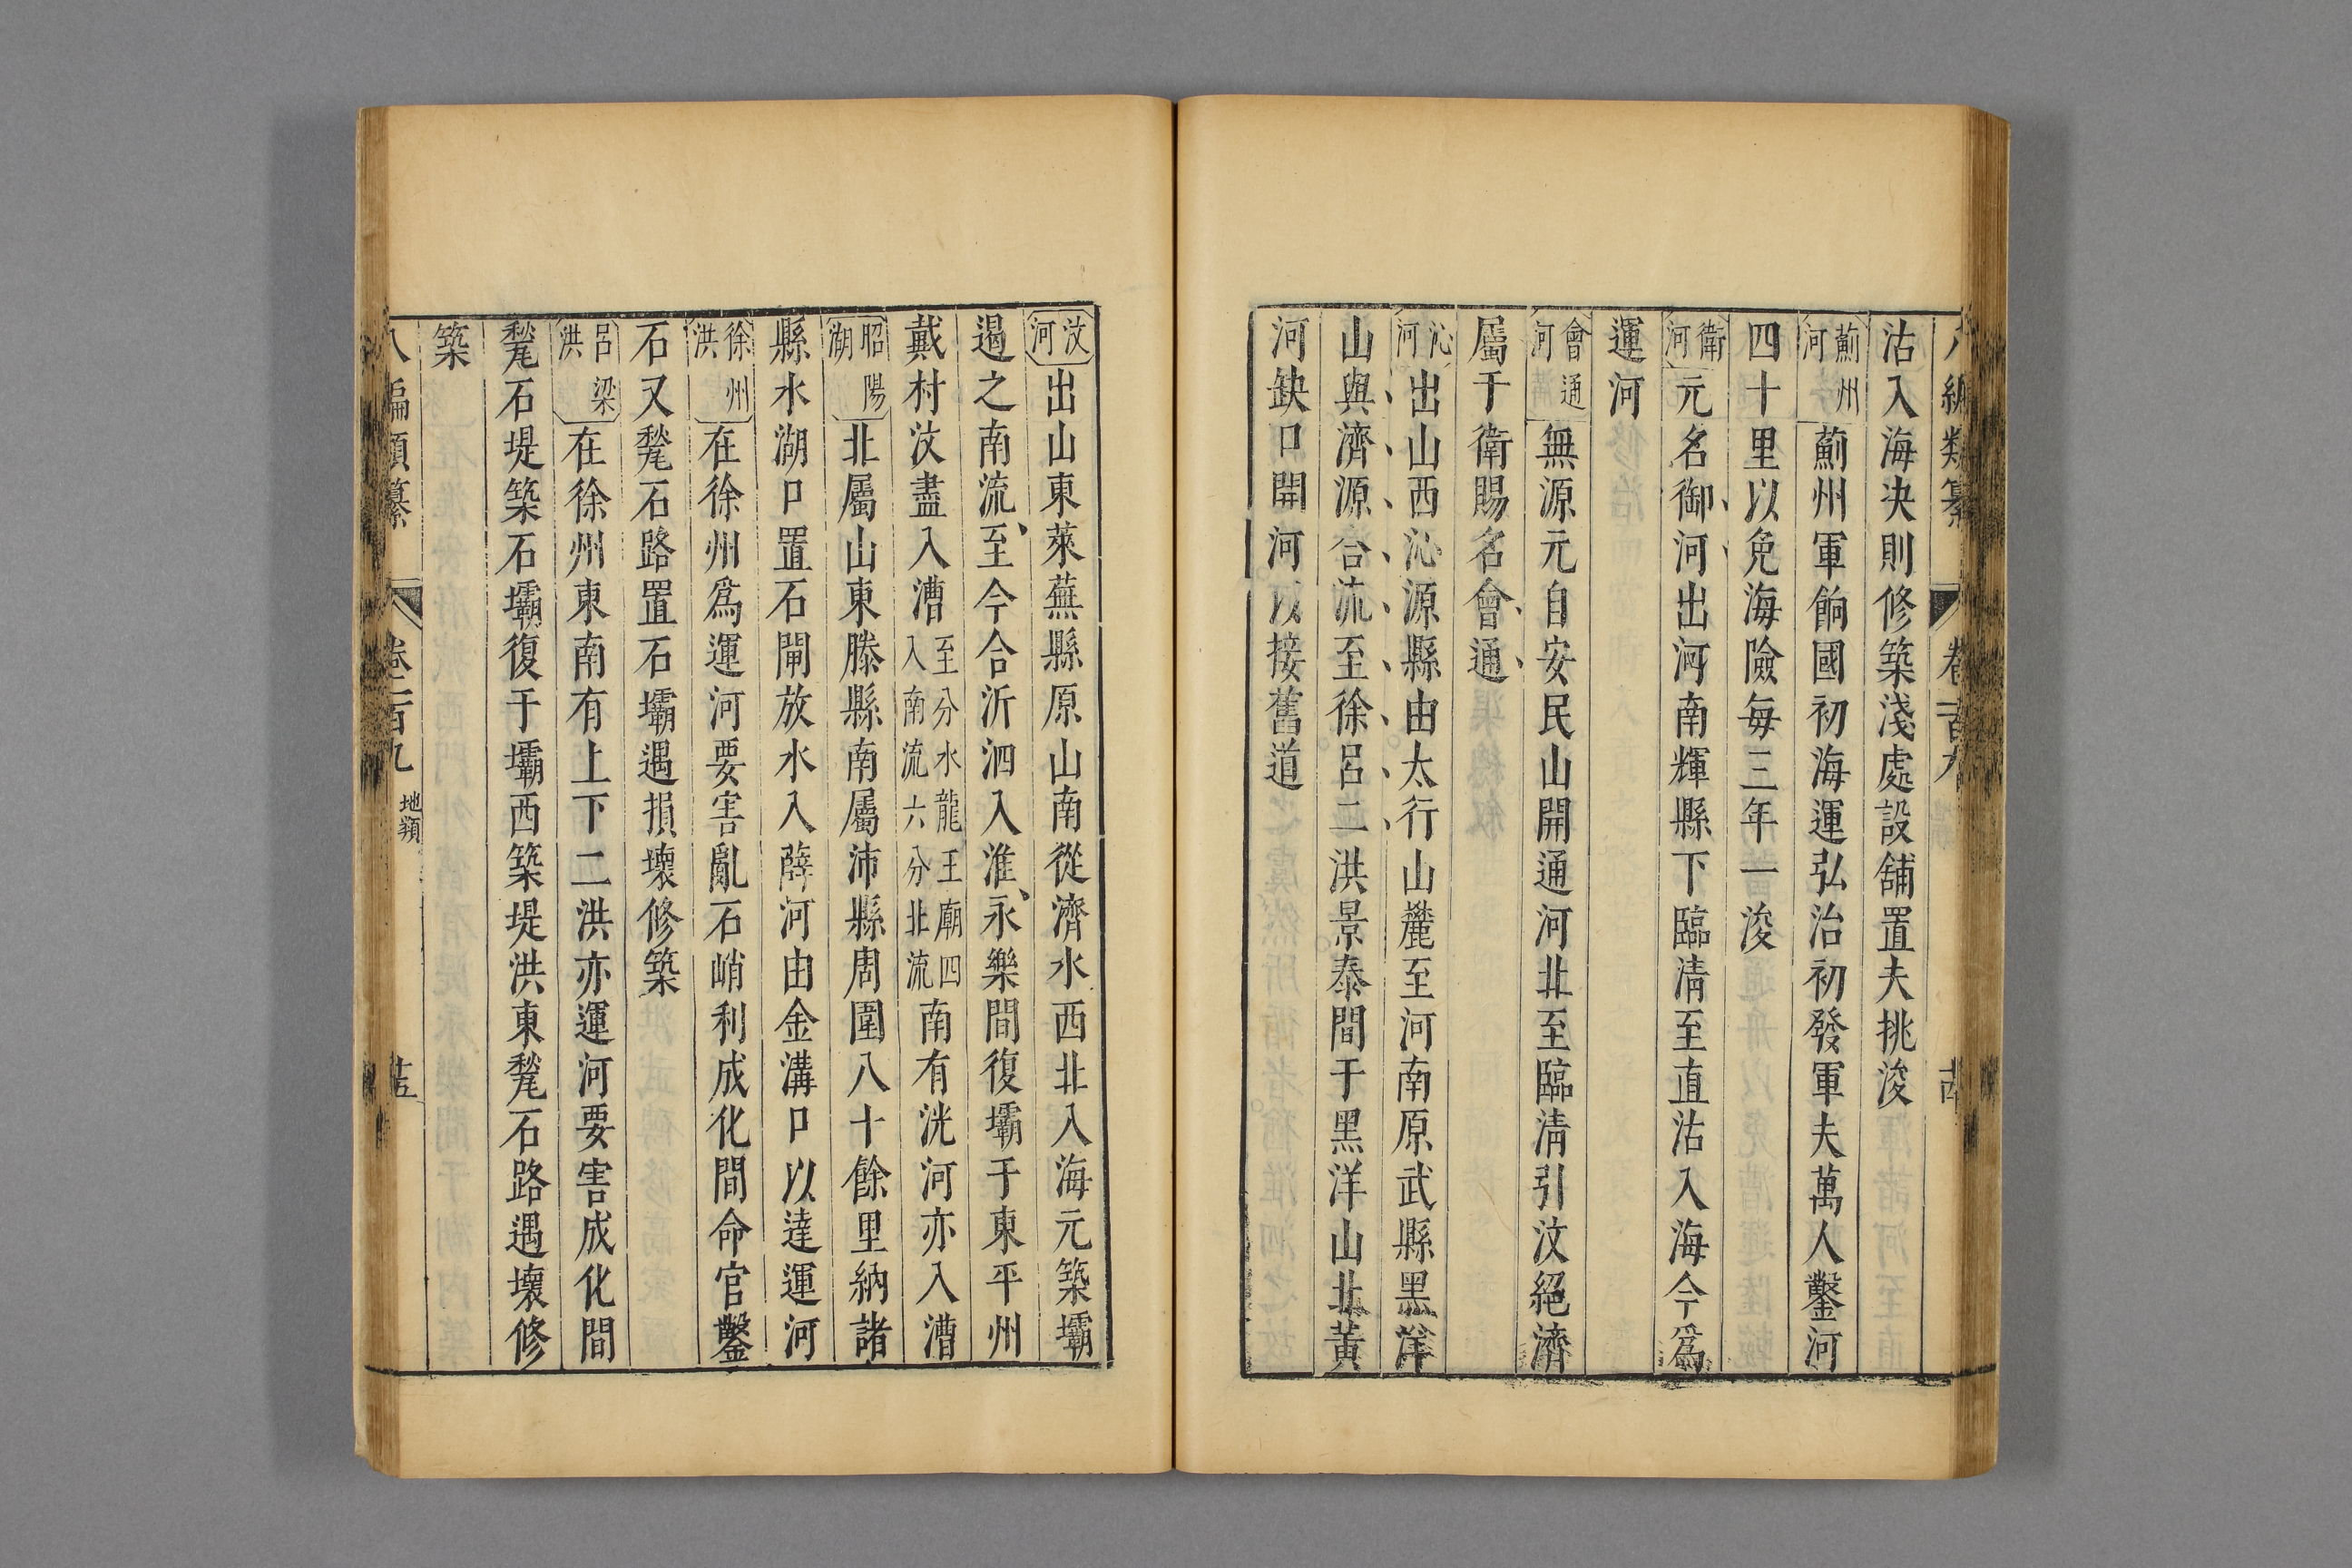 沽入海决則修築淺處設舖置夫挑浚
薊州河 薊州軍餉國初海運弘治初發軍夫萬人鑿河
四十里以免海險每三年一浚
衛河 元名御河出河南輝縣下臨清至直沽入海今爲
運河
會通河 無源元自安民山開通河北至臨清引汶絕濟
屬于衛賜名會通
沁河 出山西沁源縣由太行山麓至河南原武縣黑洋
山與濟源合流至徐呂二洪景泰間于黑洋山北黃
河缺口開河以接舊道
汶河 出山東萊蕪縣原山南從濟水西北入海元築壩
遏之南流至今合沂泗入淮永樂間復壩于東平州
戴村汶盡入漕 至分水龍王廟四 入南流六分北流 南有洸河亦入漕
昭陽湖 北屬山東滕縣南屬沛縣周圍八十餘里納諸
縣水湖口置石閘放水入薛河由金溝口以達運河
徐州洪 在徐州爲運河要害亂石峭利成化間命官鑿
石又甃石路置石壩遇損壞修築
呂梁洪 在徐州東南有上下二洪亦運河要害成化間
甃石堤築石壩復于壩西築堤洪東甃石路遇壞修
築
八編類纂 卷一百九 地類